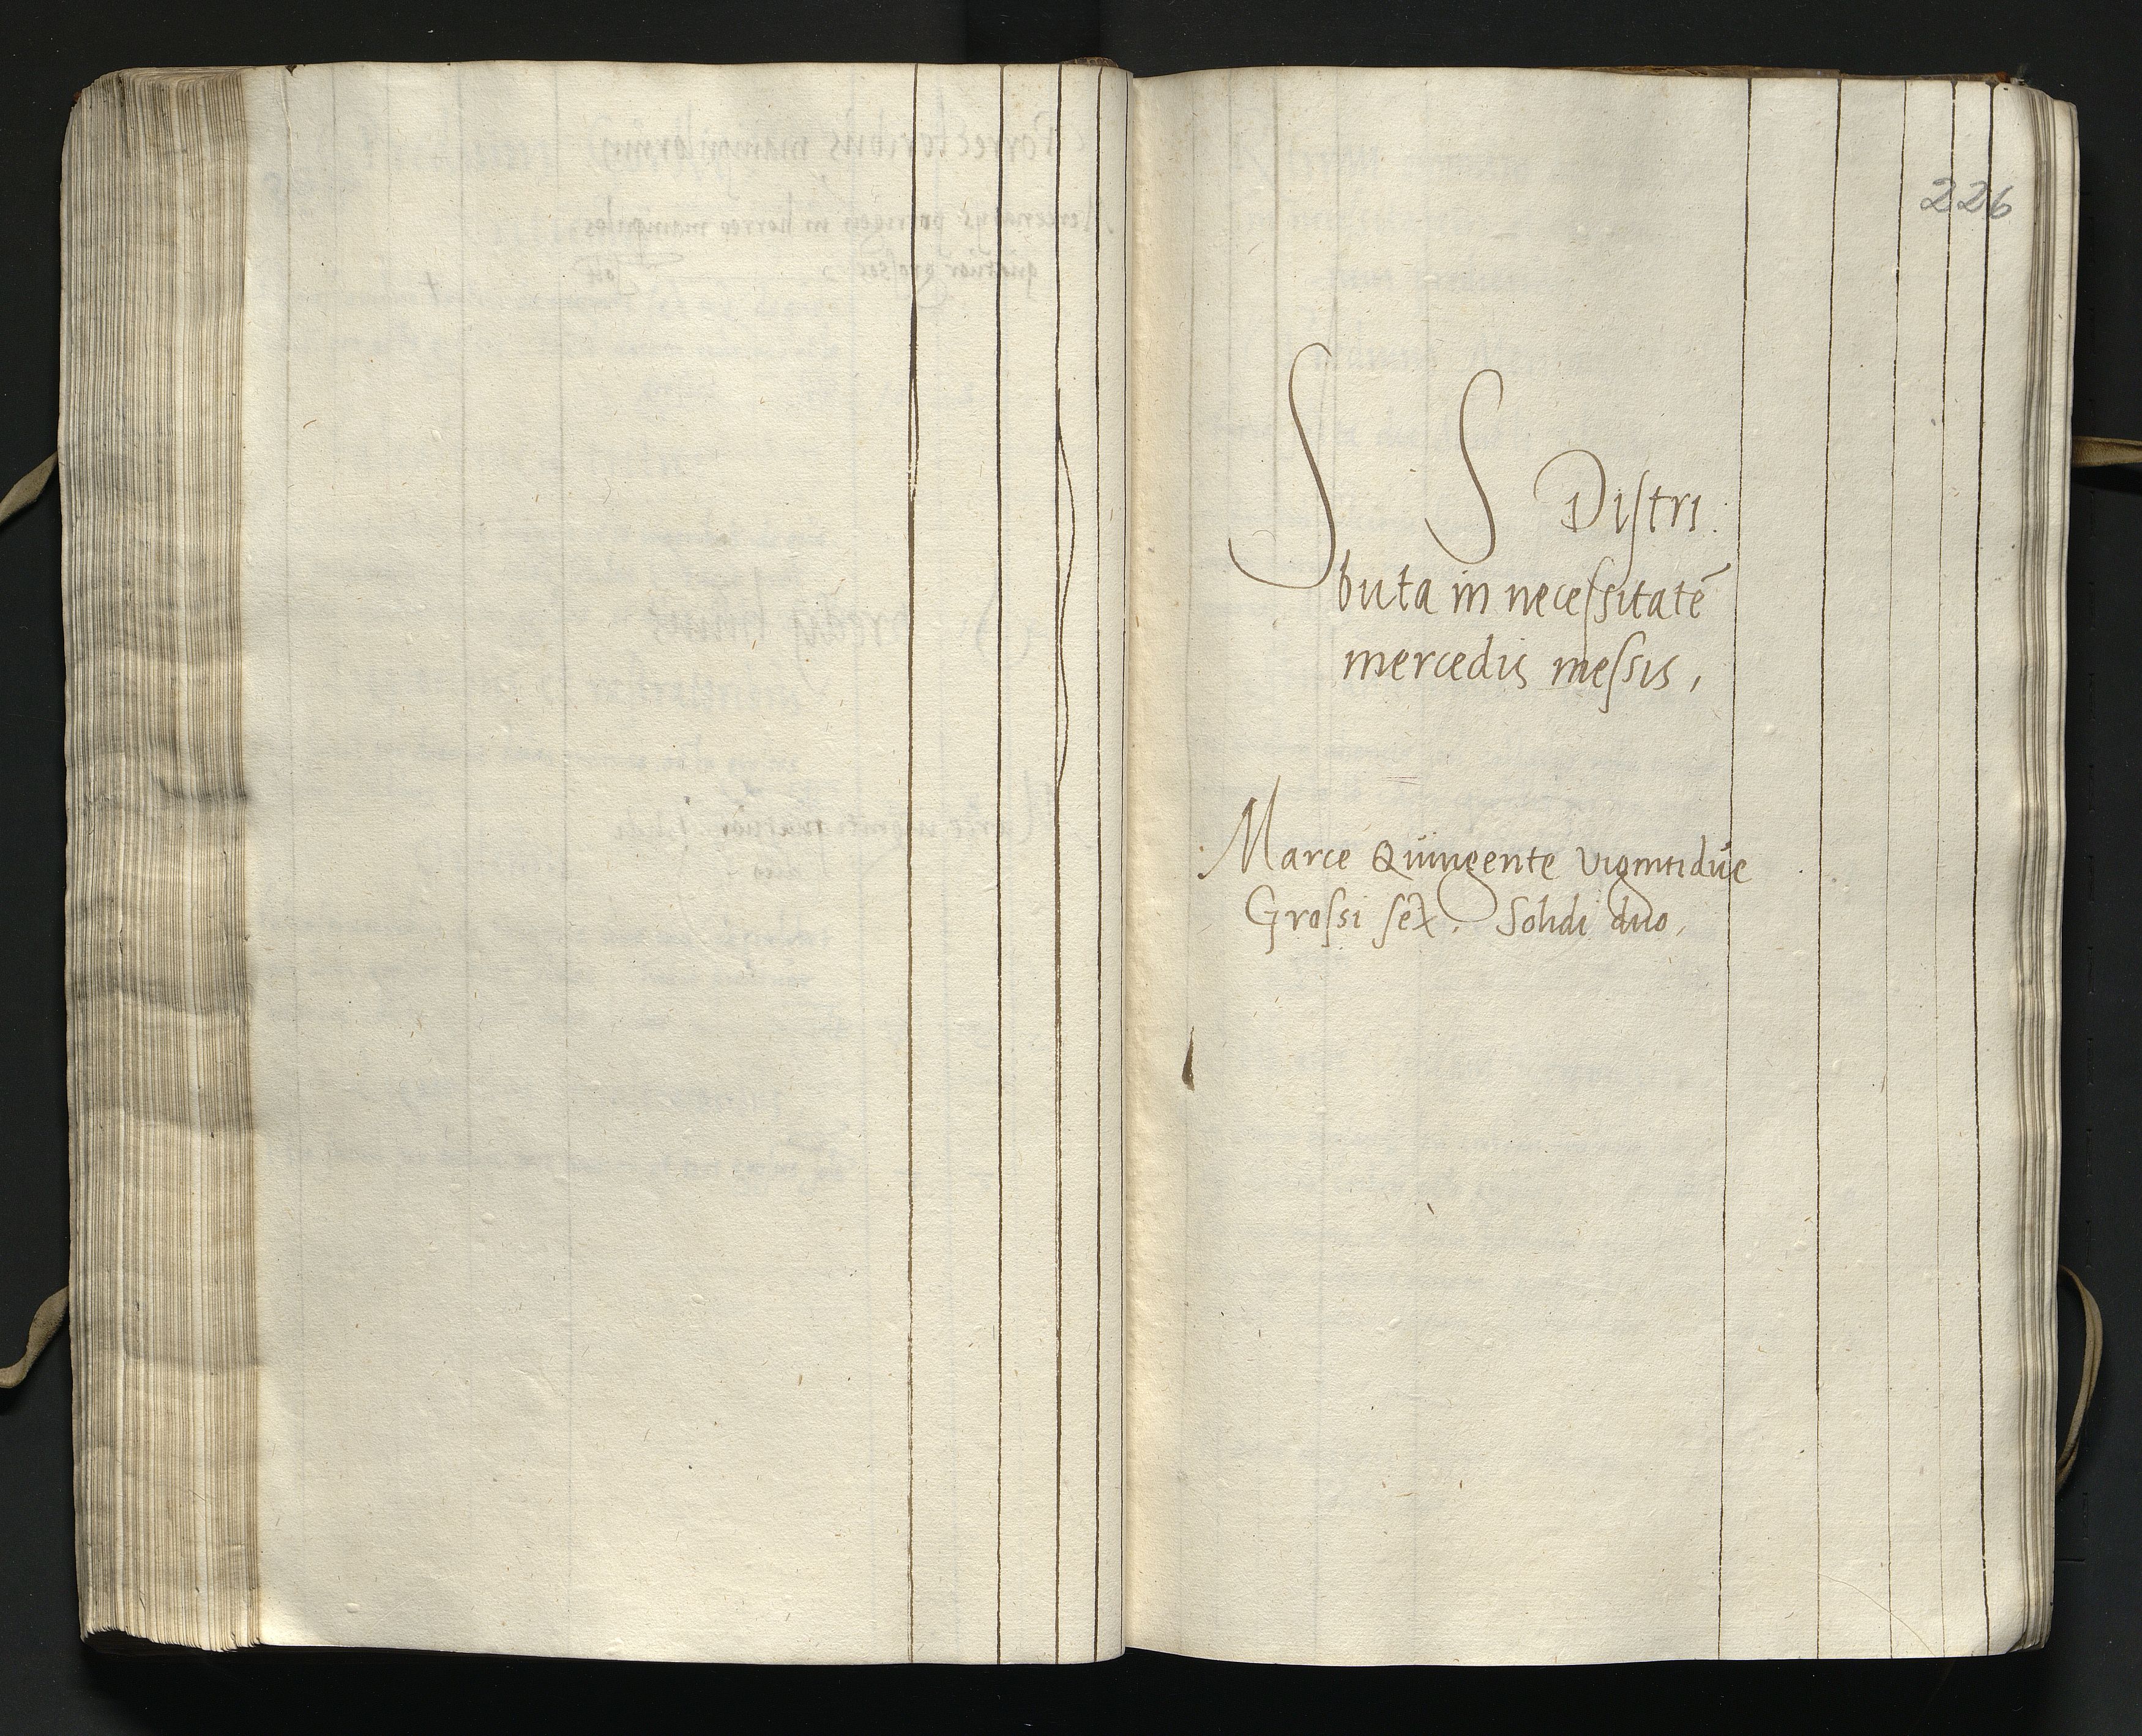 226
S S Distri
buta in necessitatē
mercedis messis,
Marce Quingente vigintidue
Grossi sex. Solidi duo,